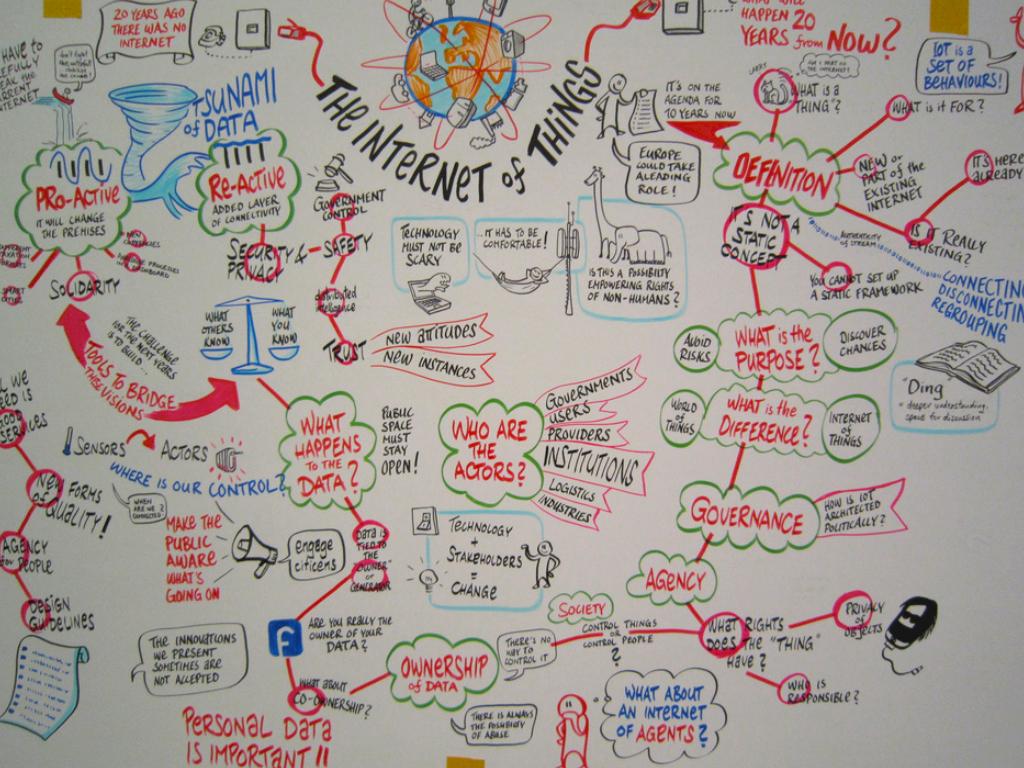 20 YEARS AGO
THERE WAS NO
INTERNET
THE INTERNET of THINGS
HAPPEN 20
YEARS from NOW?
IOT is a
SET OF
BEHAVIOURS!
HAVE to
TSUNAMI
of DATA
PRO-ACTIVE
IT WILL CHANGE
THE PREMISES
RE-ACTIVE
ADDED LAYER
OF CONNECTIVITY
GOVERNMENT
CONTROL
SECURITY &
PRIVACY
SAFETY
distributed
intelligence
TRUST
NEW ATTITUDES
NEW INSTANCES
SOLIDARITY
TECHNOLOGY
MUST NOT BE
SCARY
...IT HAS TO BE
COMFORTABLE!
IS THIS A POSSIBILITY
EMPOWERING RIGHTS
OF NON-HUMANS?
IT'S ON THE
AGENDA FOR
10 YEARS NOW
EUROPE
COULD TAKE
A LEADING
ROLE!
DEFINITION
WHAT IS A
"THING"?
WHAT IS IT FOR?
NEW OR
PART OF THE
EXISTING
INTERNET
IT'S HERE
ALREADY
IS IT REALLY
EXISTING?
IT'S NOT A
STATIC
CONCEPT
YOU CANNOT SET UP
A STATIC FRAMEWORK
CONNECTING
DISCONNECTING
REGROUPING
"Ding"
= deeper understanding,
space for discussion
AVOID
RISKS
WHAT IS the
PURPOSE?
DISCOVER
CHANCES
WORLD
OF
THINGS
WHAT IS the
DIFFERENCE?
INTERNET
OF
THINGS
GOVERNANCE
HOW IS IOT
ARCHITECTED
POLITICALLY?
AGENCY
WHAT RIGHTS
DOES THE "THING"
HAVE?
PRIVACY
OF
OBJECTS
WHO IS
RESPONSIBLE?
WHAT
OTHERS
KNOW
WHAT
YOU
KNOW
THE CHALLENGE
FOR THE NEXT YEARS
IS TO BUILD...
TOOLS TO BRIDGE
THESE VISIONS
SENSORS
ACTORS
WHERE IS OUR CONTROL?
WHAT
HAPPENS
TO the
DATA?
PUBLIC
SPACE
MUST
STAY
OPEN!
WHO ARE
THE
ACTORS?
GOVERNMENTS
USERS
PROVIDERS
INSTITUTIONS
LOGISTICS
INDUSTRIES
NEW FORMS
of
QUALITY!
AGENCY
for PEOPLE
DESIGN
GUIDELINES
WHEN
ARE WE
CONNECTED
MAKE THE
PUBLIC
AWARE
WHAT'S
GOING ON
engage
citizens
DATA is
TIED TO
THE
"OWNER" or
GENERATOR
TECHNOLOGY
+
STAKEHOLDERS
=
CHANGE
ARE YOU REALLY THE
OWNER OF YOUR
DATA?
f
WHAT ABOUT
CO-OWNERSHIP?
PERSONAL DATA
IS IMPORTANT!!
THE INNOVATIONS
WE PRESENT
SOMETIMES ARE
NOT ACCEPTED
OWNERSHIP
of DATA
THERE'S NO
WAY TO
CONTROL IT
SOCIETY
CONTROL THINGS
OR
CONTROL PEOPLE
?
THERE IS ALWAYS
THE POSSIBILITY
OF ABUSE
WHAT ABOUT
AN INTERNET
OF AGENTS?